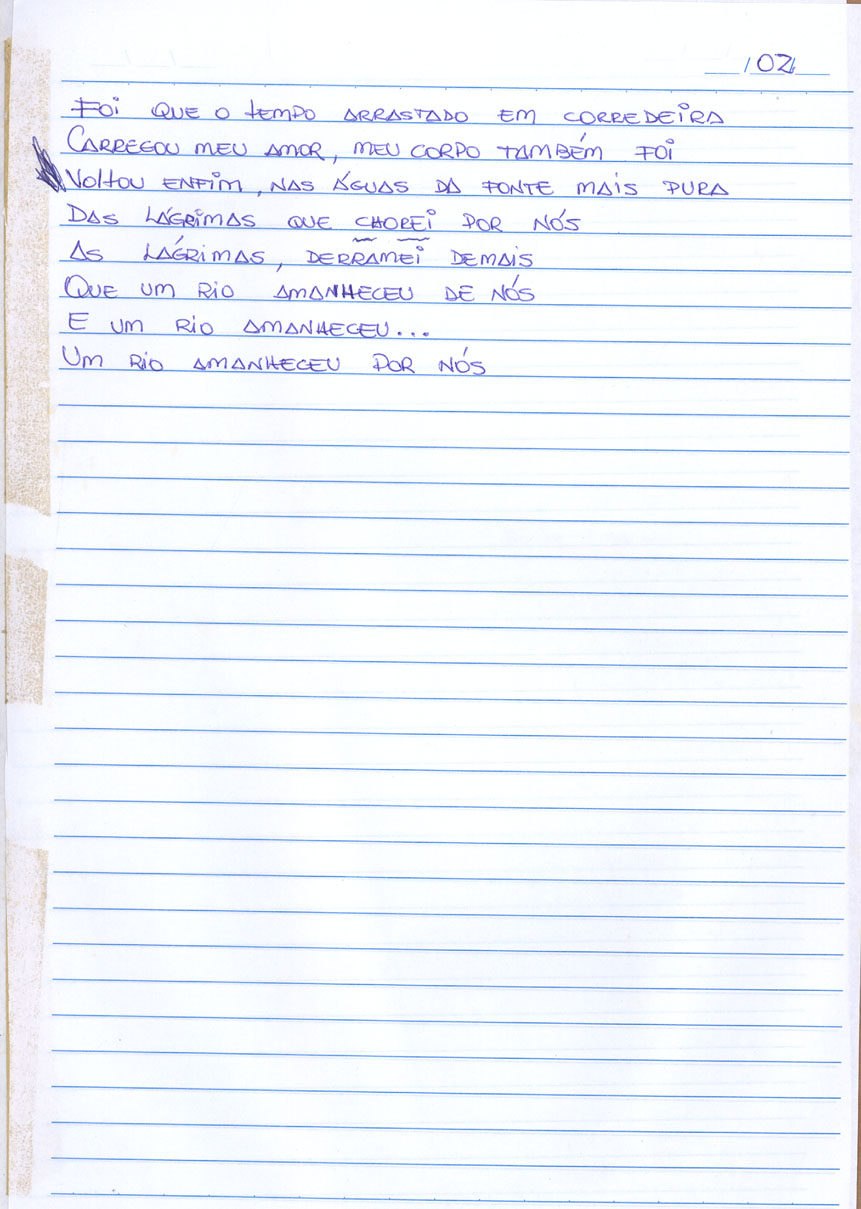 02
Foi QUE O tEMPO ARRASTADO EM CORREDEiRA
CARREGOU MEU AMOR, MEU CORPO TAMBÉM FOi
VOltOU ENFIM, NAS ÁGUAS DA FONTE MAIS PURA
DAS LÁGRiMAS QUE CHOREi POR NÓS
AS LÁGRiMAS, DERRAMEi DEMAIS
QUE UM RiO AMANHECEU DE NÓS
E UM RiO AMANHECEU...
UM RiO AMANHECEU POR NÓS